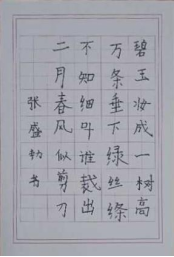 碧玉妆成一树高
万条垂下绿丝绦
不知细叶谁裁出
二月春风似剪刀
张盛书